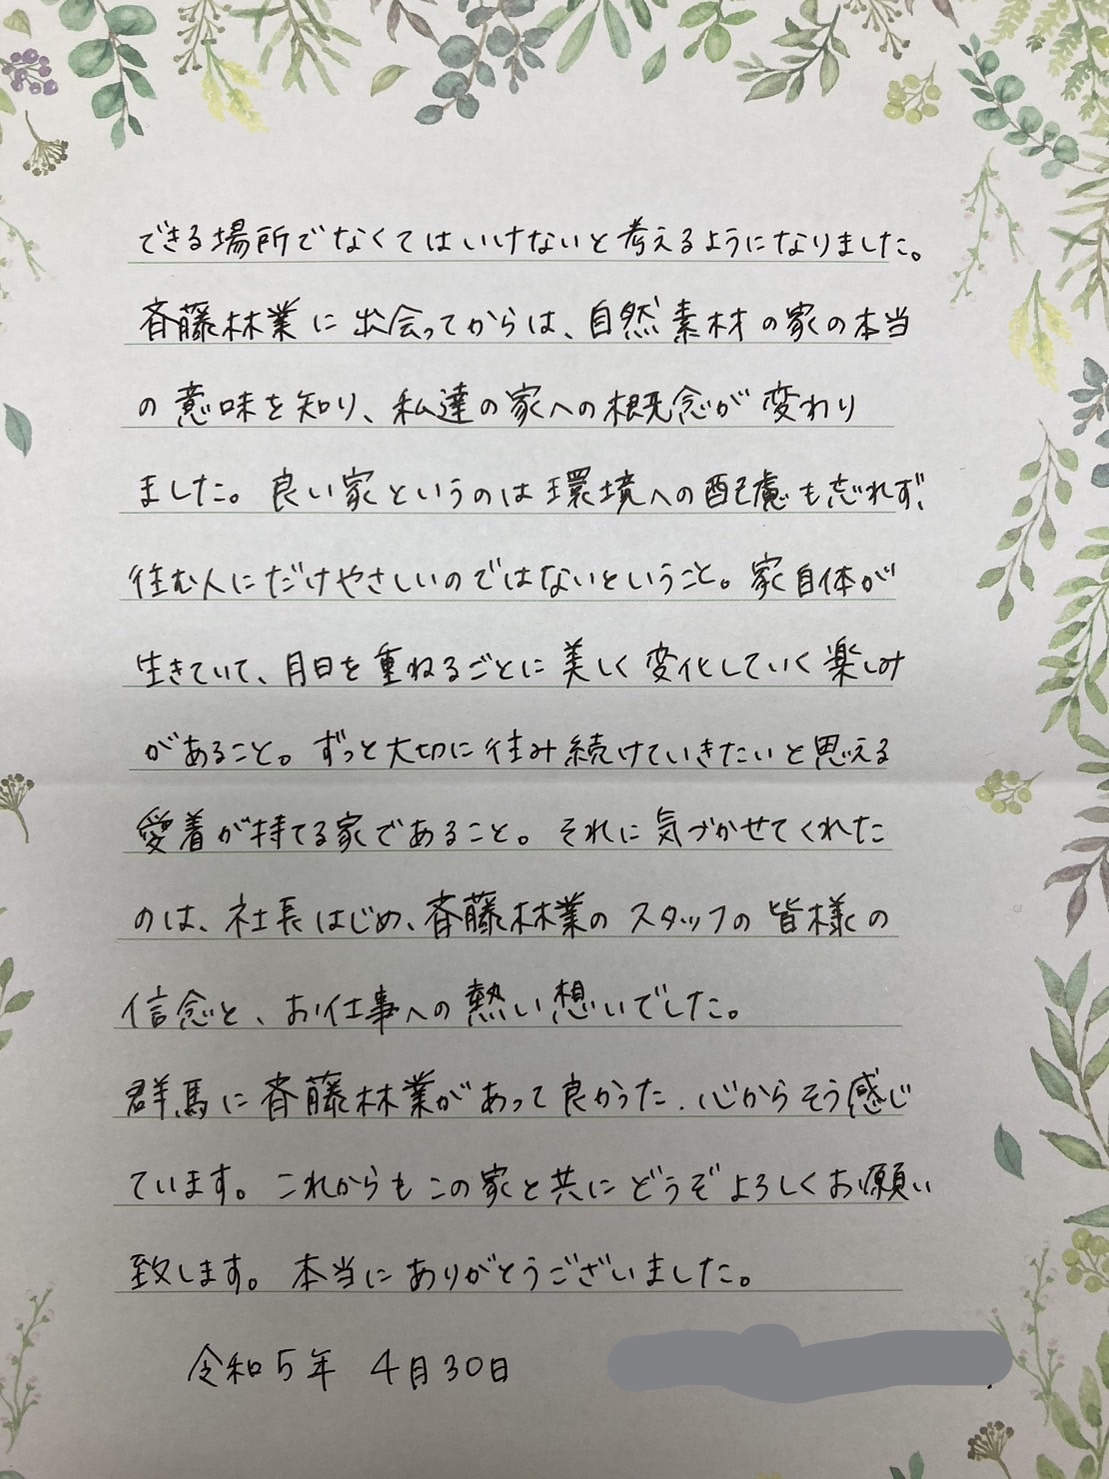 できる場所でなくてはいけないと考えるようになりました。
斉藤林業に出会ってからは、自然素材の家の本当
の意味を知り、私達の家への概念が変わり
ました。良い家というのは環境への配慮も忘れず、
住む人にだけやさしいのではないということ。家自体が
生きていて、月日を重ねるごとに美しく変化していく楽しみ
があること。ずっと大切に住み続けていきたいと思える
愛着が持てる家であること。それに気づかせてくれた
のは、社長はじめ、斉藤林業のスタッフの皆様の
信念と、お仕事への熱い想いでした。
群馬に斉藤林業があって良かった、心からそう感じ
ています。これからもこの家と共にどうぞよろしくお願い
致します。本当にありがとうございました。
令和5年 4月30日